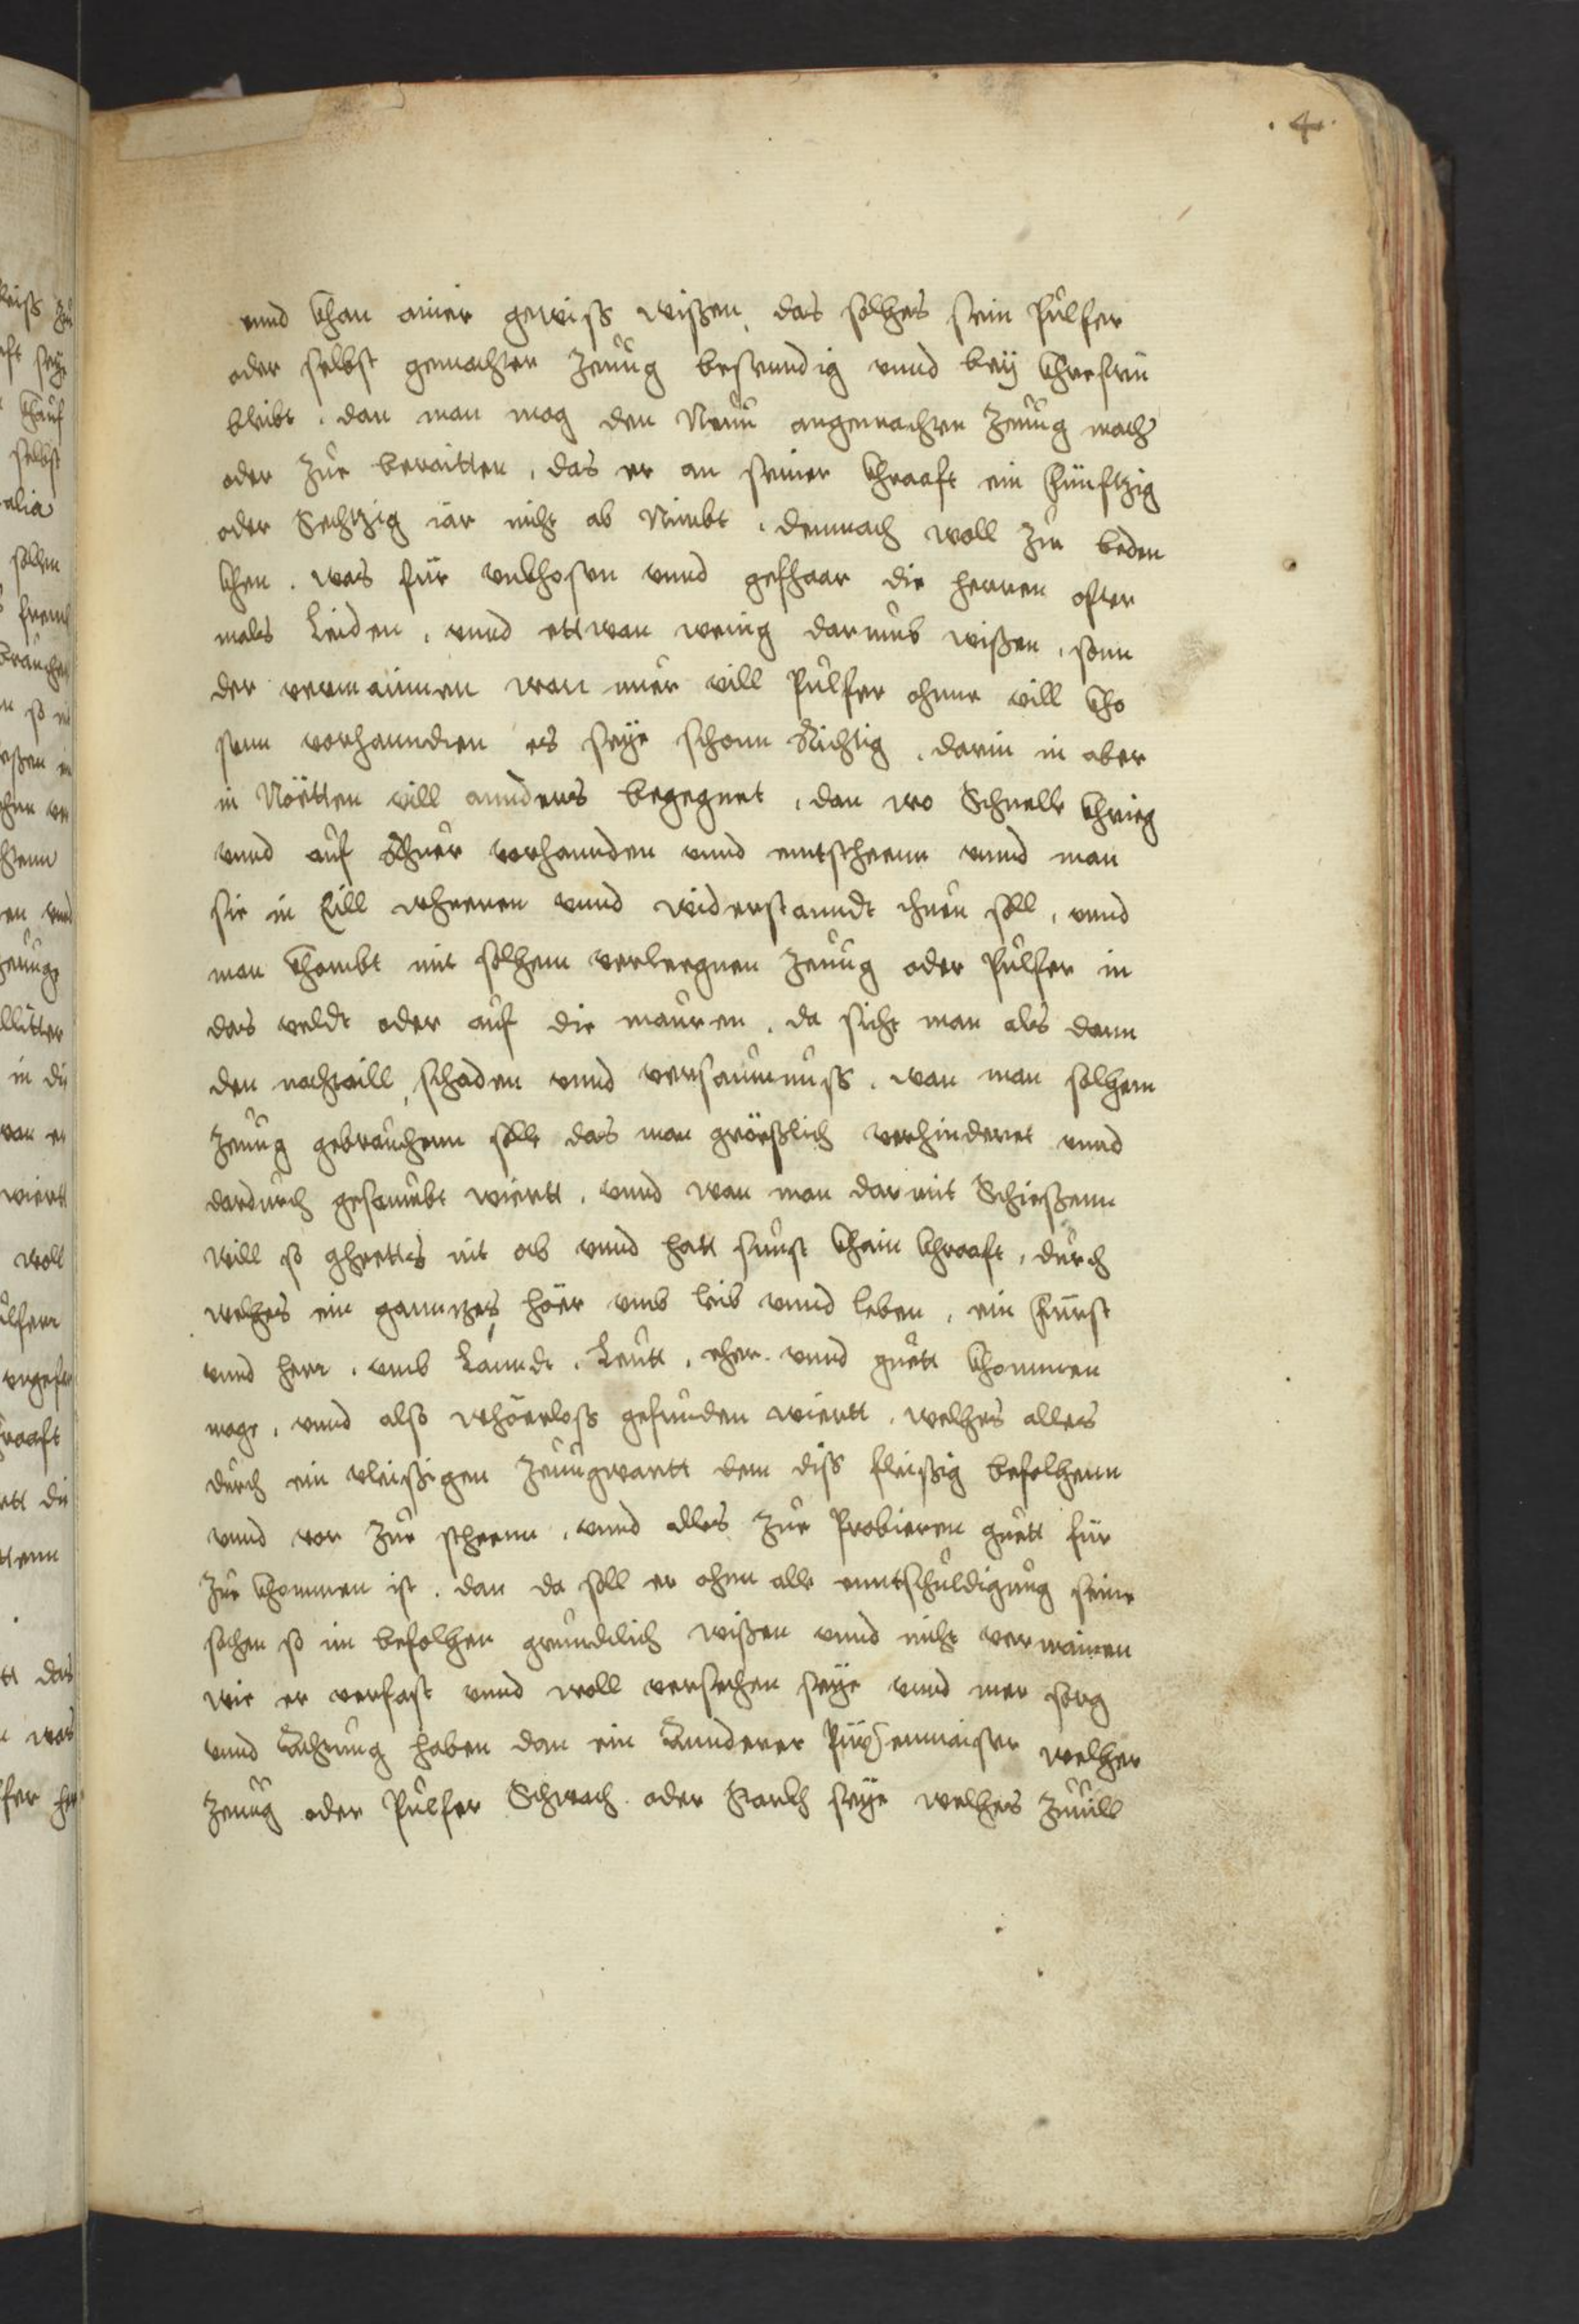 .4.
vnnd khan ainer gewiss wißen, das solhes sein Pulfer
oder selbst gemachter Zeuug bestenndig vnnd beÿ khrefften
bleibt. dan man mag den Neuu angemachten Zeuug mach
oder zue beraitten, das er an seiner khraaft ein fünftzig
oder Sechtzig iar nicht ab Nimbt. demnach woll zu beden
khen. was für vnkhosten vnnd gefhaar die herren ofter
mals Leiden, vnnd ettwan wenig darumb wißen, sonn
der vermainnen wan nuer vill Pulfer ohnne vill kho
sten vorhanndten es seÿe schonn Richtig. darin in aber
in Nötten vill annders begegnet, dan wo Schnelle khrieg
vnnd auf Rhuer vorhannden vnnd enntsteenn vnnd man
sie in Eill wheeren vnnd widerstanndt thuen soll, vnnd
man khombt mit solhem verleegnen Zeuug oder Pulfer in
das veldt oder auf die mauren. da sicht man als dann
den nachtaill, schaden vnnd versaumnuss. wan man solhem
Zeuug gebrauchenn solle das man größlich verhinderet vnnd
dardurch gesaumbt wiertt. vnnd wan man darmit Schießenn
will so gheettes nit ab vnnd hatt sunst khain khraaft, durch
welhes ein ganntzes höer vmb leib vnnd leben, ein fürst
vnnd herr. vmb Lanndt. Leutt, eher. vnnd guett khommen
mage, vnnd also whöerloss gefunden wiertt. welhes alles
durch ein vleißigen Zeuugwartt dem diss fleißig befolhenn
vnnd vor zue steenn. vnnd alles zue Probieren guett für
zue khommen ist. dan da soll er ohnn alle enntschuldigung seine
sachen so im befolhen gruindtlich wißen vnnd nicht vermainen
wie er verfast vnnd woll versechen seÿe vnnd mer sorg
vnnd Achtung haben dan ein Annderer Püxsenmaister welher
Zeuug oder Pulfer Schwach oder Starkh seÿe welhes zuuill